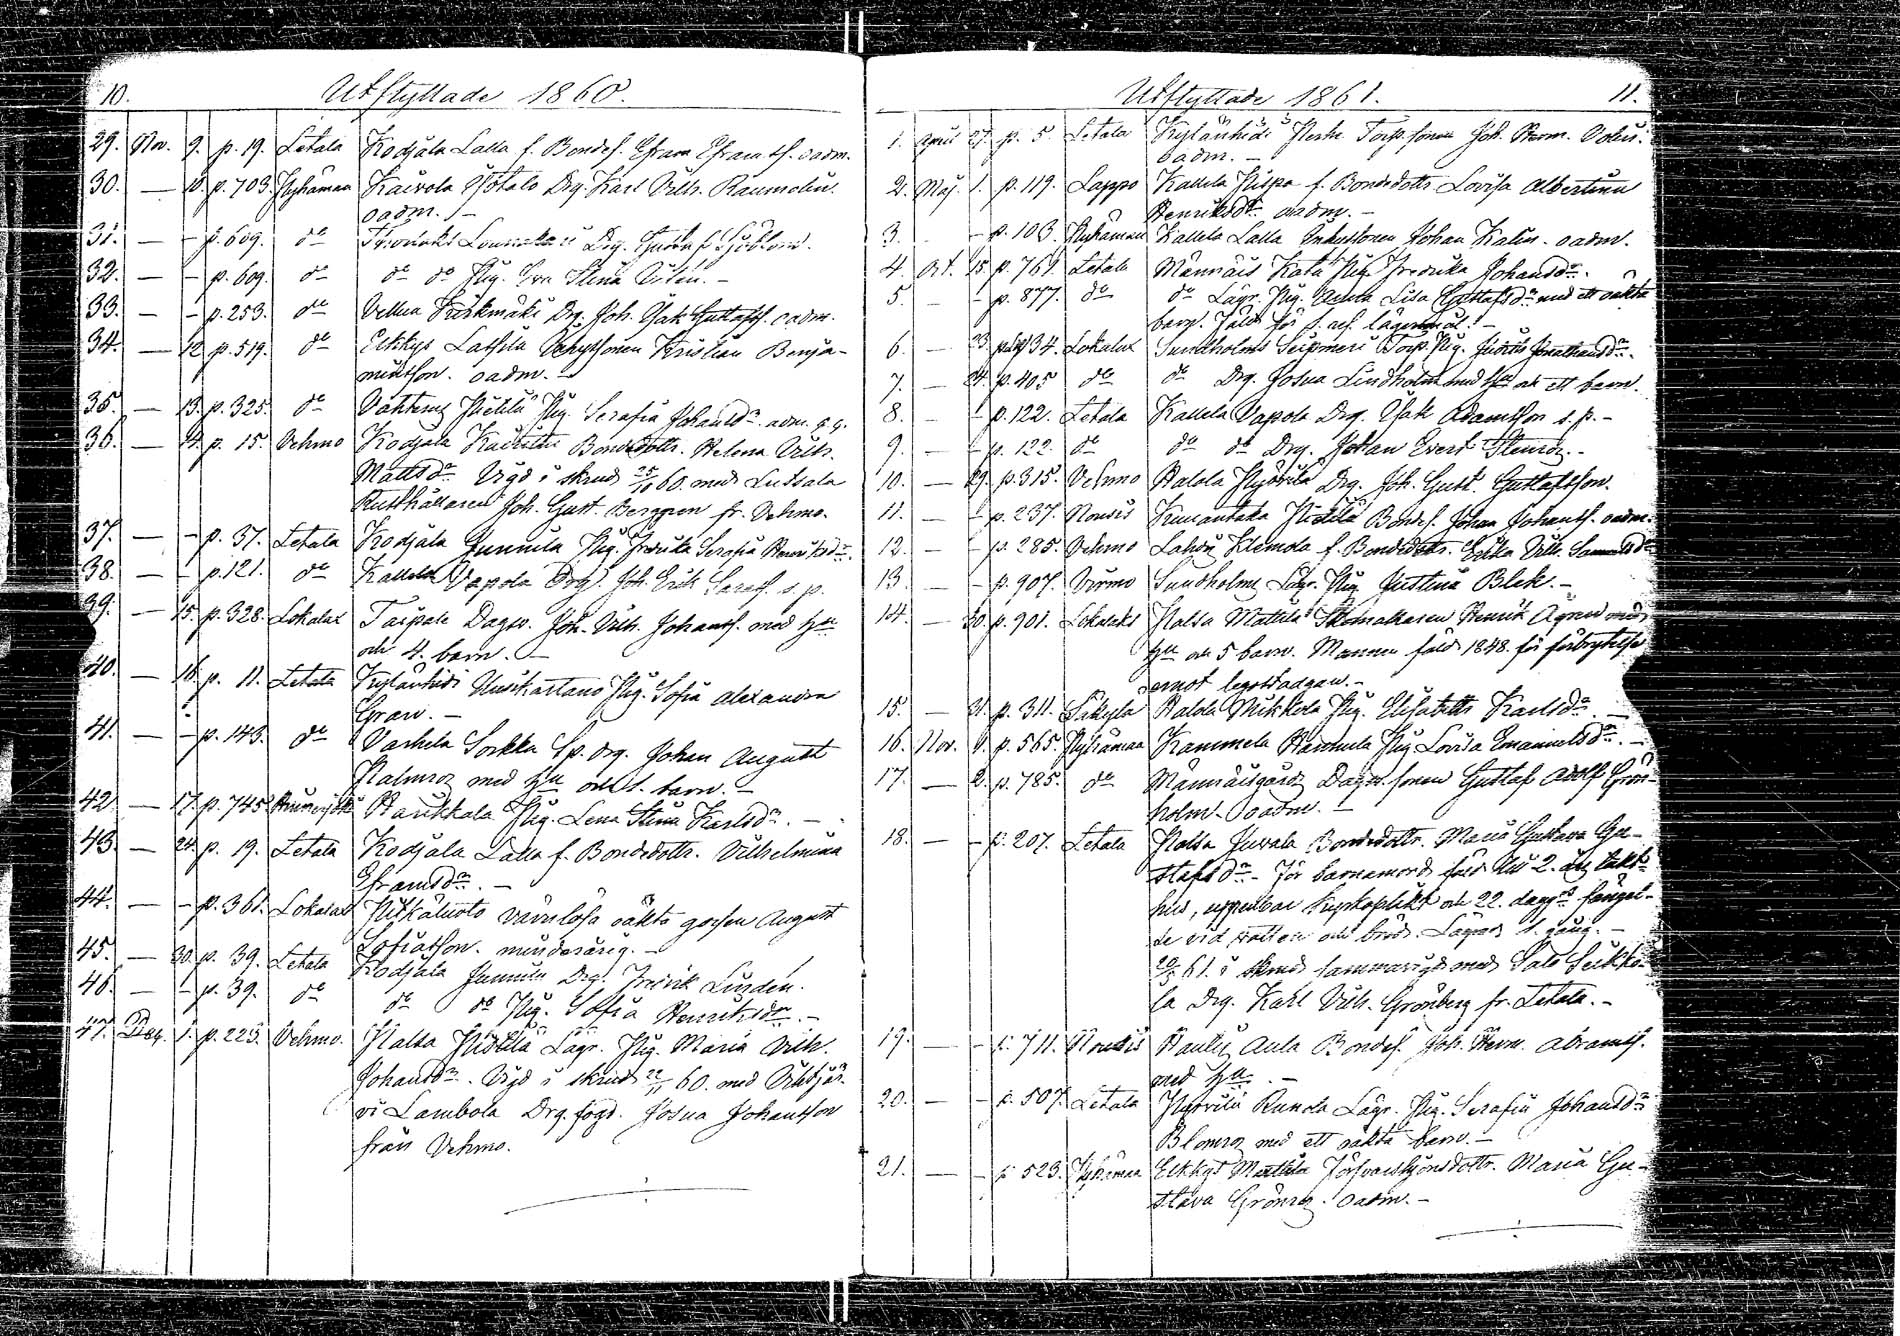 10. Utflyttade 1860.
29. Nov. 9. p. 19. Letala Kodjala Lalla f. Bondes. Efraim Efraimss. oadm.
30. — 10. p. 703. Nykämaa Kaivola Ylötalo Drg. Karl Vilh. Raumolin.
oadm. —
31. — - p. 609. do Drg. Gustaf Sjöblom.
32. — - p. 609. do do do Pig. Eva Stina Viten. —
33. — - p. 253. do Vellua Kriskmäki Drg. Joh. Isak Gustafss. oadm.
34. — 12. p. 519. do Elkkys Lassila Kristian Benja-
minsson. oadm. —
35. — 13. p. 325. do Pietilä Pig. Serafia Johansdr. adm. g. g.
36. — 14. p. 15. Vehmo Kodjala Bondedottr. Helena Vilh.
Mattsdr. Vigd i skrud 25/10 60. med Lutsala
Rusthållaren Joh. Gust. Berggren fr. Vehmo.
37. — - p. 37. Letala Kodjala Junnila Pig. Fredrika Serafia Henriksdr.
38. — - p. 121. do Kallela Vapola Drg. Joh. Erik s. p.
39. — 15. p. 328. Lokalax Taipale Dagsv. Joh. Vilh. Johanss. med hu
och 4. barn. —
40. — 16. p. 11. Letala Kylänkidi Uusikartano Pig. Sofia Alexandra
Gran. —
41. — - p. 143. do Varhela Sorkka Sp. drg. Johan August
Malmroz med hu och 1. barn. —
42. — 17. p. 745. Haukkala Pig. Lena Stina Karlsdr. —
43. — 24. p. 19. Letala Kodjala Lalla f. Bondedottr. Vilhelmina
Eframsdr. —
44. — - p. 361. Lokalax Pitkäluoto värnlösa oäkta gossen August
Sofiasson. minderårig. —
45. — 30. p. 39. Letala Kodjala Junnila Drg. Fredrik Linden.
46. — - p. 39. do do do Pig. Sofia Henriksdr. —
47. Dec. 1. p. 223. Vehmo. Halsa Pietilä Lägr. Pig. Maria Vilh.
Johansdr. Vigd i skrud 22/11 60. med
vi Lambola Drg. fogd. Josua Johansson
från Vehmo.
Utflyttade 1861. 11.
1. April 27. p. 5. Letala Kylänkidi Torp. sonen Joh. Herm.
oadm. —
2. Maj. 1. p. 119. Lappo Kallela Piispa f. Bondedottr Lovisa Albertina
Henriksdr. oadm. —
3. - - p. 103. Nykämaa Kallela Lalla Inhysesonen Johan Kalin. oadm.
4. Oct. 15. p. 761. Letala Männäis Pig. Fredrika Johansdr.
5. - - p. 877. do do Lägr. Pig. Anna Lisa Gustafsdr med ett oäkta
barn. Fäld för 1. res. lägersmål. —
6. — 23. Lokalax Sundholms Torp. Pig. Jonathansdr.
7. — 24. p. 405 do do Drg. Josua Lindholm med hu och ett barn.
8. — - p. 122. Letala Kallela Vapola Drg. Isak Adamsson s. p. —
9. — - p. 122. do do do Drg. Johan Evert Stenroz. —
10. — 29. p. 315. Vehmo Palola Drg. Joh. Gust. Gustafsson.
11. — - p. 237. Nousis Kunantaka Pietilä Bondes. Johan Johanss. oadm.
12. — - p. 285. Vehmo Lahdi Klemola f. Bondedottr. Erika Vilh. Samuelsdr
13. — - p. 907. Virmo Sundholms Lägr. Pig. Justina Blek. —
14. — 30. p. 901. Lokalaks Halsa Mattila Skomakaren Henrik Ågren med
hu och 5 barn. Mannen fäld 1848. för förbrytelse
emot legostadgan. —
15. — 31. p. 311. Säkylä Palola Mikkola Pig. Elisabeth Karlsdr. —
16. Nov. 1. p. 565. Nykämaa Kammela Hammula Pig. Lovisa Emanuelsdr. —
17. — 2. p. 785. do Männäisgård Dagsv. sonen Gustaf Adolf Grön-
holm. oadm. —
18. — - p. 207. Letala Halsa Juvala Bondedottr. Maria Gustava Gu-
stafsdr. — För barnamord fäld till 2. års tukt-
hus, uppenbar kyrkoplikt och 22. dagars fängel-
se vid vatten och bröd. Lägrad 1. gång. —
61. i skrud sammanvigd med Salo Seikko-
la Drg. Karl Vilh. Grönberg fr. Letala. —
19. — - p. 711. Nousis Aula Bondes. Joh. Herm. Abramss.
med hu. —
20. — - p. 507. Letala Hyrvilä Runola Lägr. Pig. Serafia Johansdr
Blomroz med ett oäkta barn. —
21. — - p. 523. Nykämaa Elkkys Mattila Försvarskarlsdottr. Maria Gu-
stava Grönroz. oadm. —